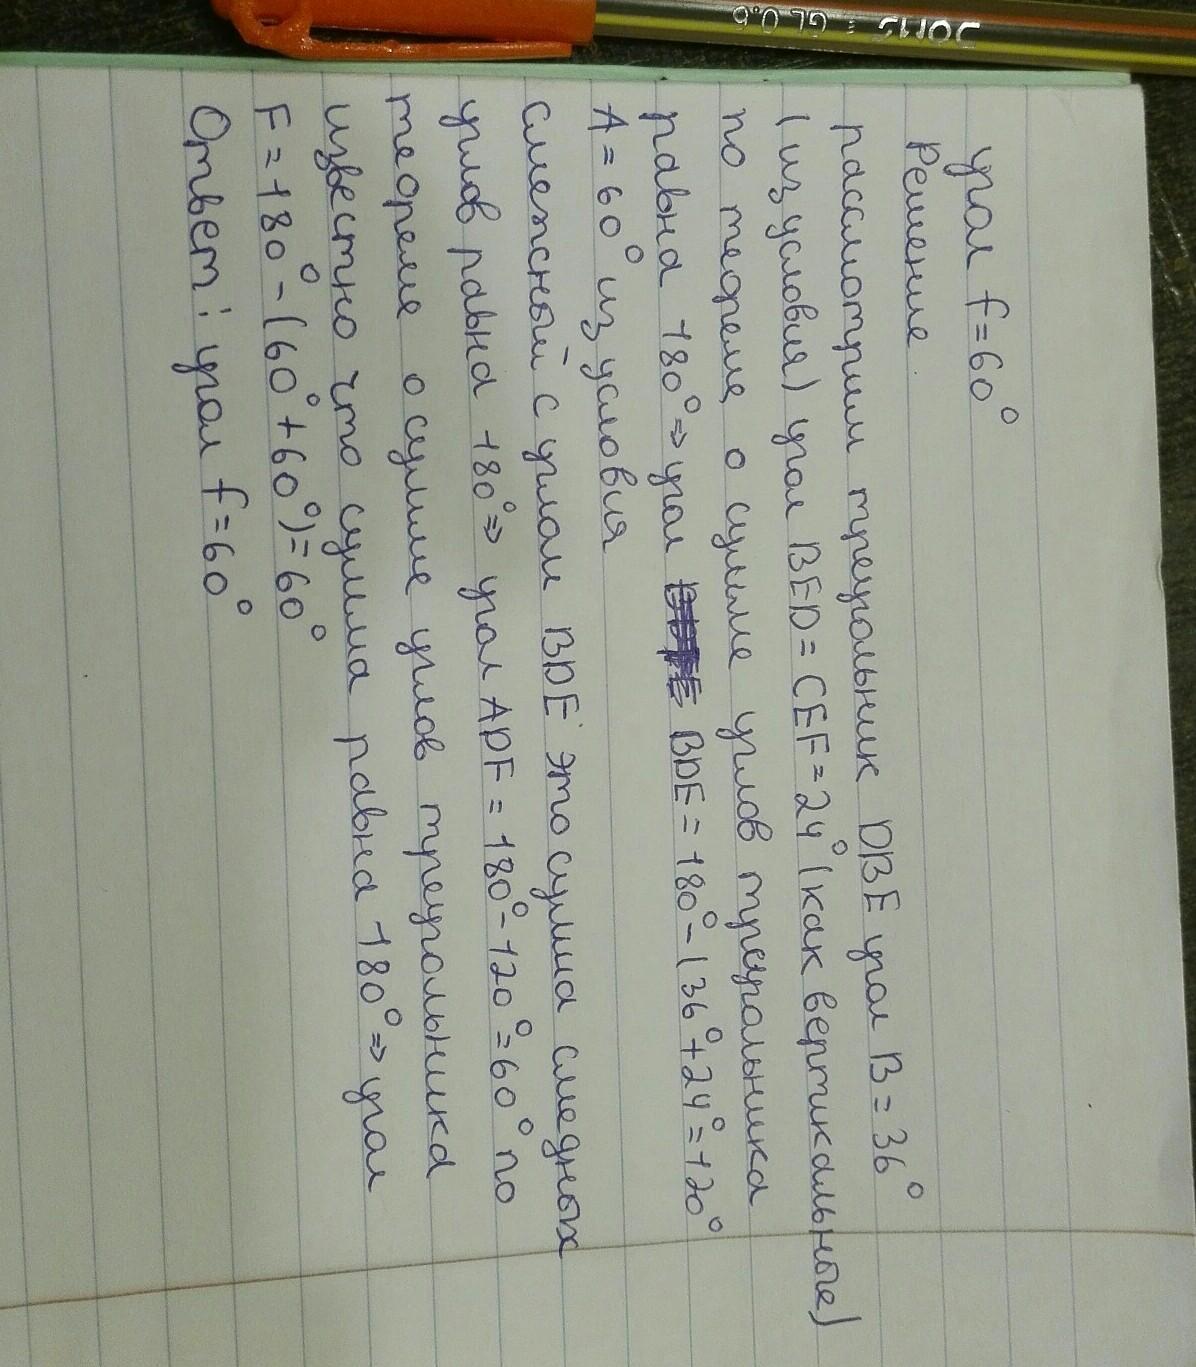 DOMS = GL 0.6
угол f=60°
Решение
рассмотрим треугольник DBE угол B=36°
(из условия) угол BED=CEF=24° (как вертикальные)
по теореме о сумме углов треугольника
равна 180°⇒ угол BDE=180°-(36°+24°=120°
A=60° из условия
смежный с углом BDE это сумма следных
углов равна 180°⇒ угол ADF=180°-120°=60° по
теореме о сумме углов треугольника
известно что сумма равна 180°⇒ угол
F=180°-(60°+60°)=60°
Ответ: угол f=60°